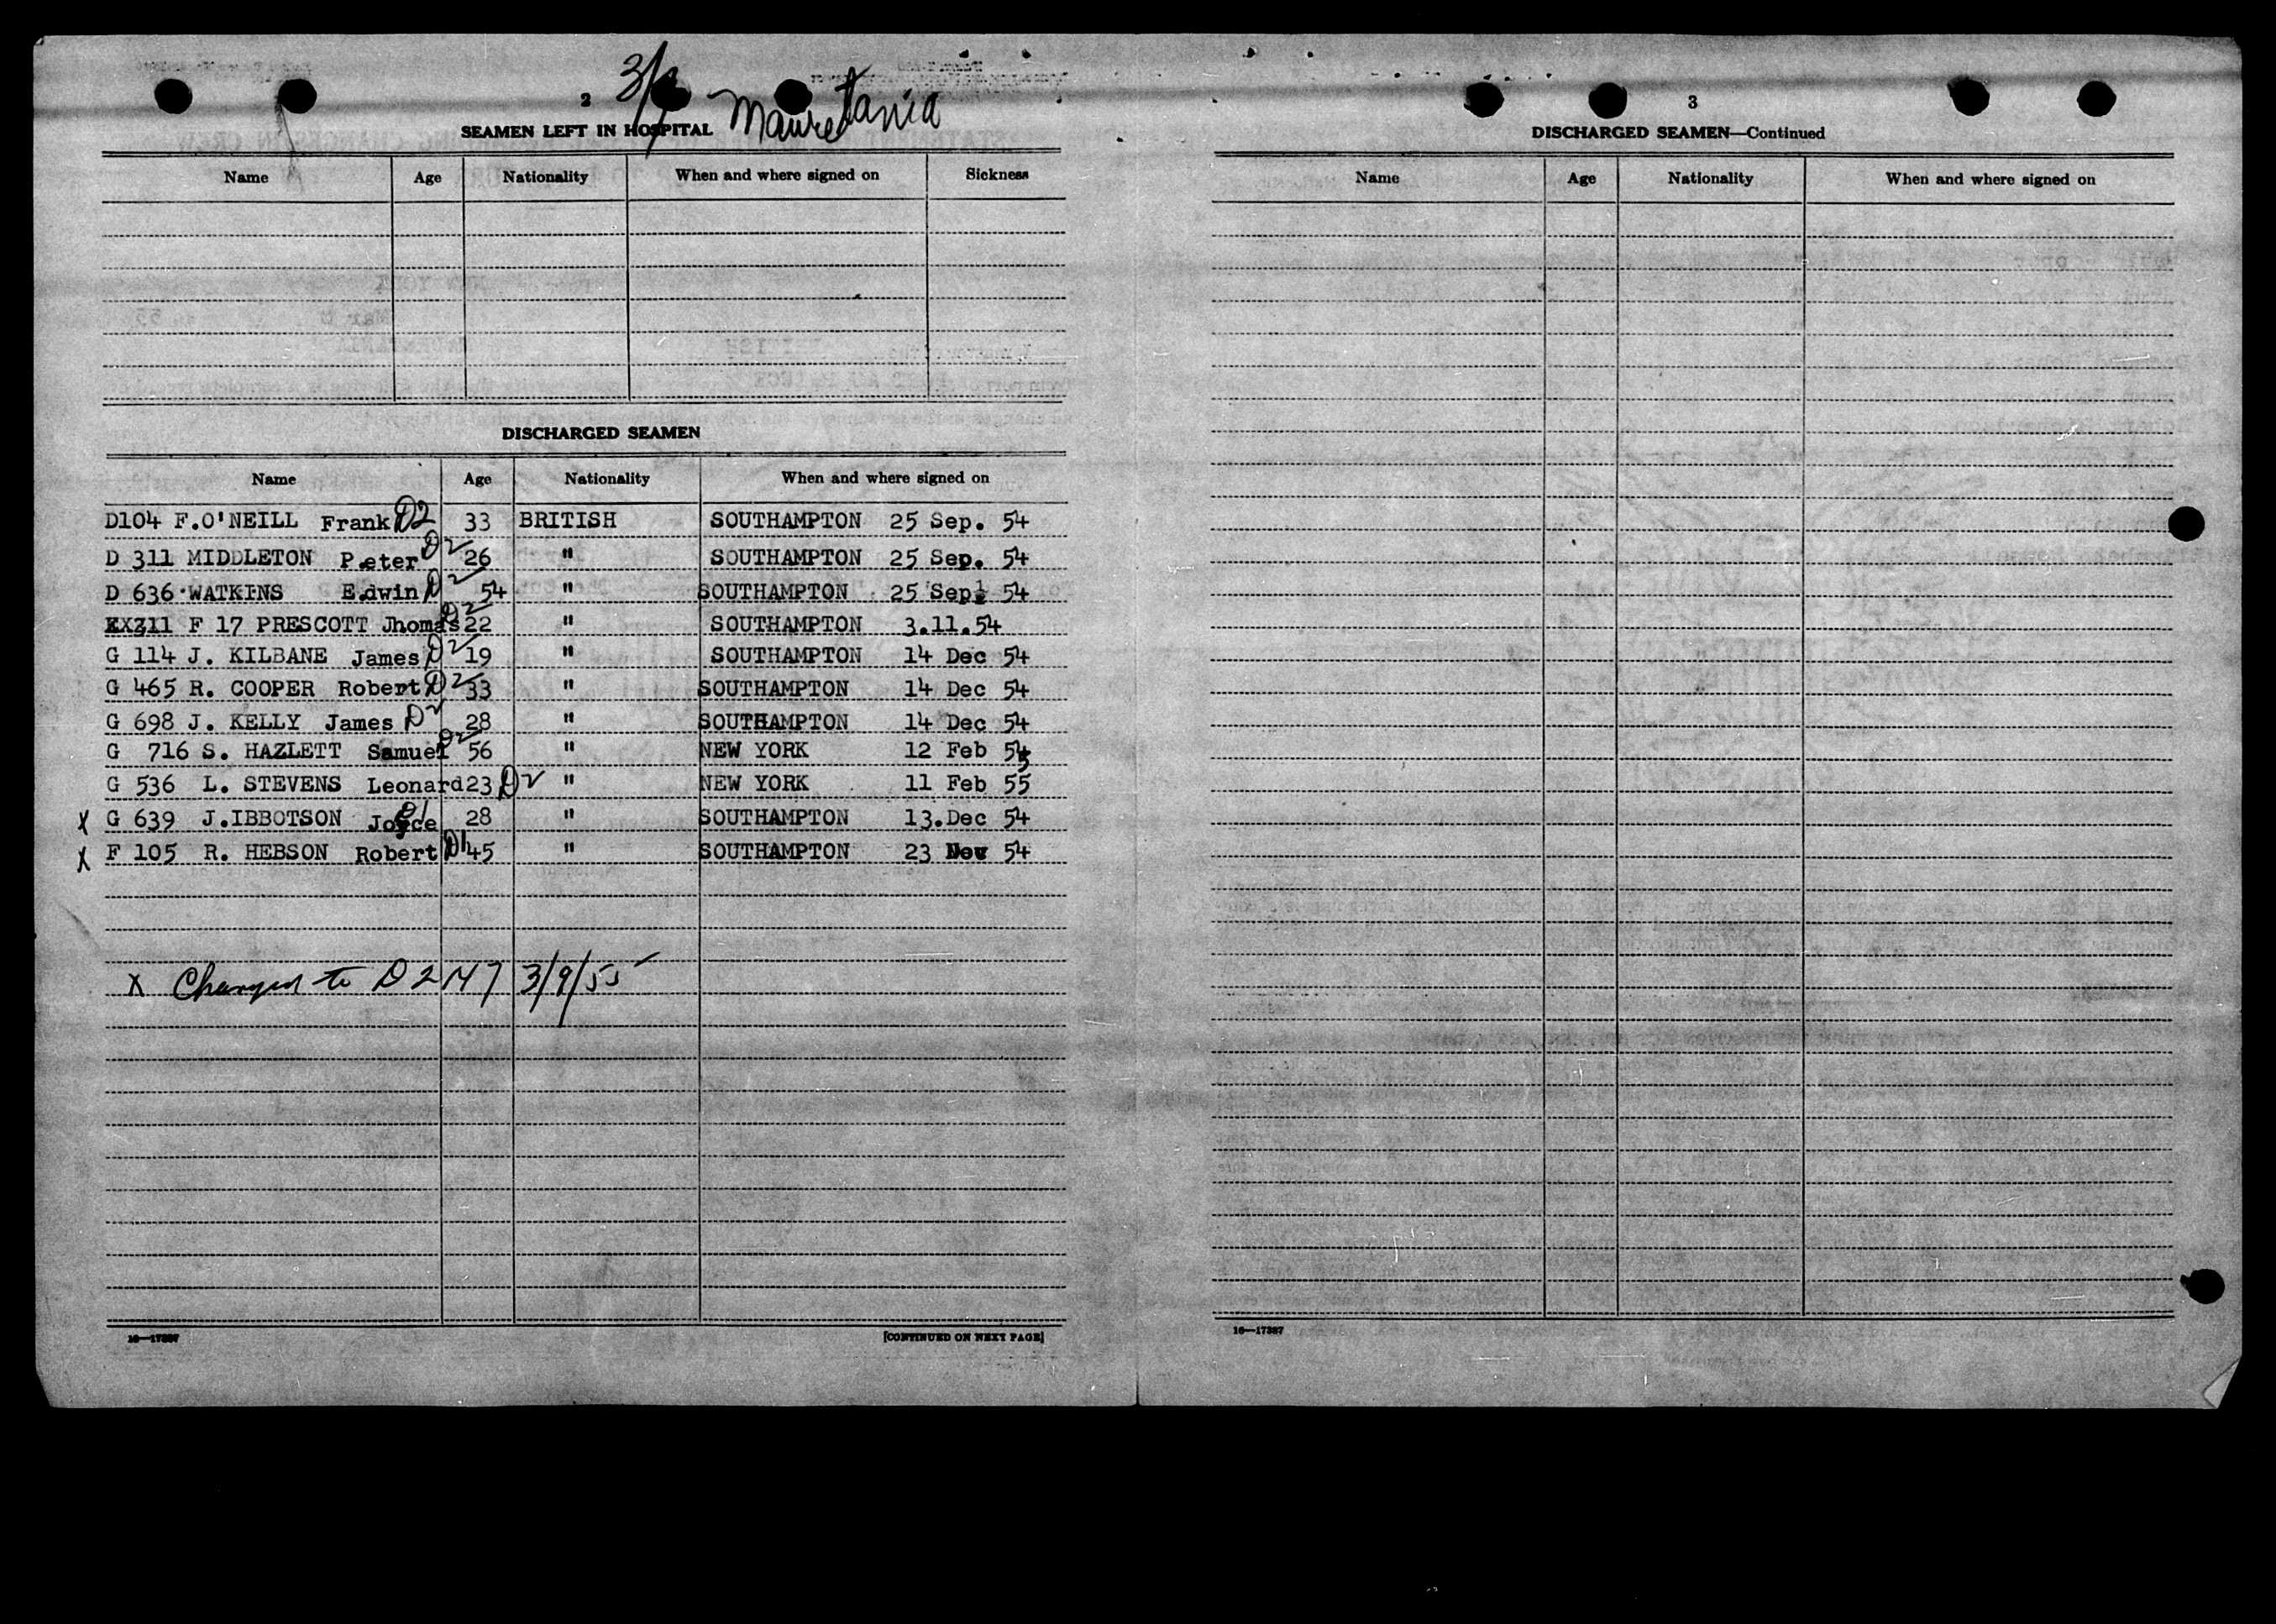 2
3/7 Mauretania
SEAMEN LEFT IN HOSPITAL
Name Age Nationality When and where signed on Sickness
DISCHARGED SEAMEN
Name Age Nationality When and where signed on
D104 F.O'NEILL Frank D2 33 BRITISH SOUTHAMPTON 25 Sep. 54
D 311 MIDDLETON Peter D2 26 " SOUTHAMPTON 25 Sep. 54
D 636 WATKINS Edwin D2 54 " SOUTHAMPTON 25 Sep. 54
F 17 PRESCOTT Jhomas D2 22 " SOUTHAMPTON 3.11.54
G 114 J. KILBANE James D2 19 " SOUTHAMPTON 14 Dec 54
G 465 R. COOPER Robert D2 33 " SOUTHAMPTON 14 Dec 54
G 698 J. KELLY James D2 28 " SOUTHAMPTON 14 Dec 54
G 716 S. HAZLETT Samuel D2 56 " NEW YORK 12 Feb 55
G 536 L. STEVENS Leonard 23 D2 " NEW YORK 11 Feb 55
X G 639 J.IBBOTSON Joyce D1 28 " SOUTHAMPTON 13.Dec 54
X F 105 R. HEBSON Robert D1 45 " SOUTHAMPTON 23 Nov 54
X Changed to D2 3/9/55
16—17387
[CONTINUED ON NEXT PAGE]
3
DISCHARGED SEAMEN—Continued
Name Age Nationality When and where signed on
16—17387